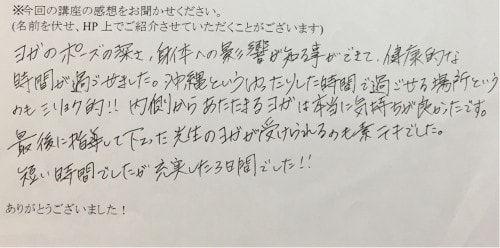 ※今回の講座の感想をお聞かせください。
(名前を伏せ、HP上でご紹介させていただくことがございます)
ヨガのポーズの深さ、身体への影響が知る事ができて、健康的な
時間が過ごせました。沖縄というゆったりした時間で過ごせる場所という
のもミリョク的!! 内側からあたたまるヨガは本当に気持ちが良かったです。
最後に指導して下さった先生のヨガが受けられるのも素テキでした。
短い時間でしたが充実した3日間でした!!
ありがとうございました！